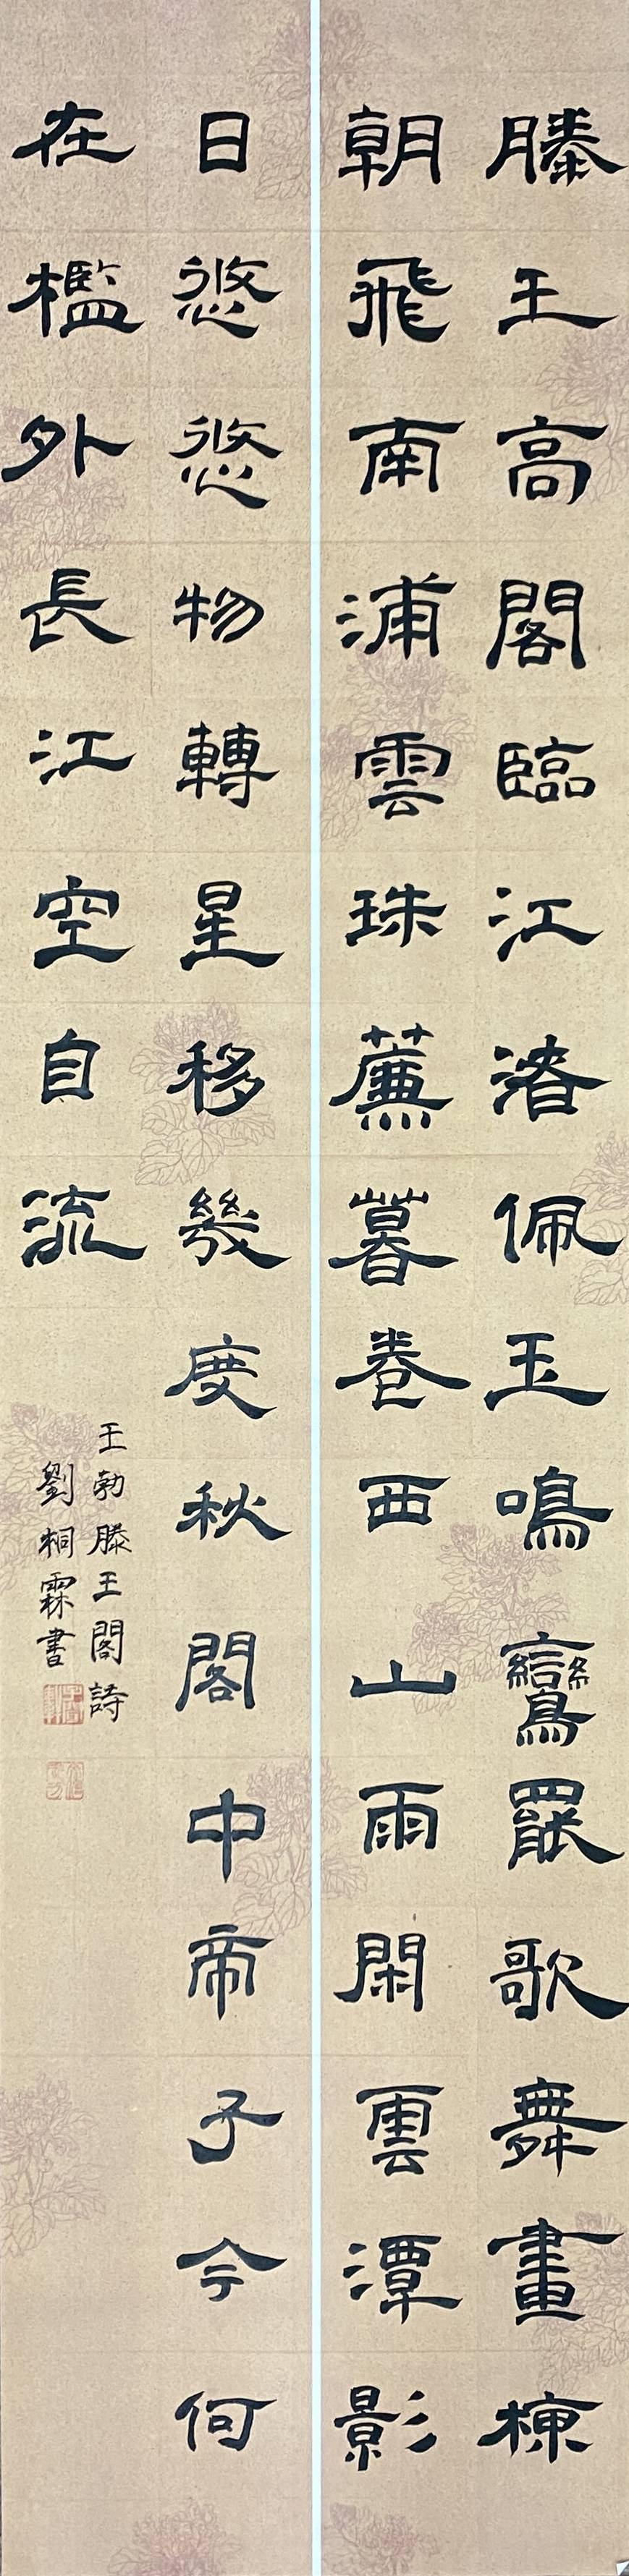 滕王高閣臨江渚佩玉鳴鸞罷歌舞畫棟
朝飛南浦雲珠薕暮卷西山雨閑雲潭影
日悠悠物轉星移幾度秋閣中帝子今何
在檻外長江空自流
王勃滕王閣詩
劉桐霖書